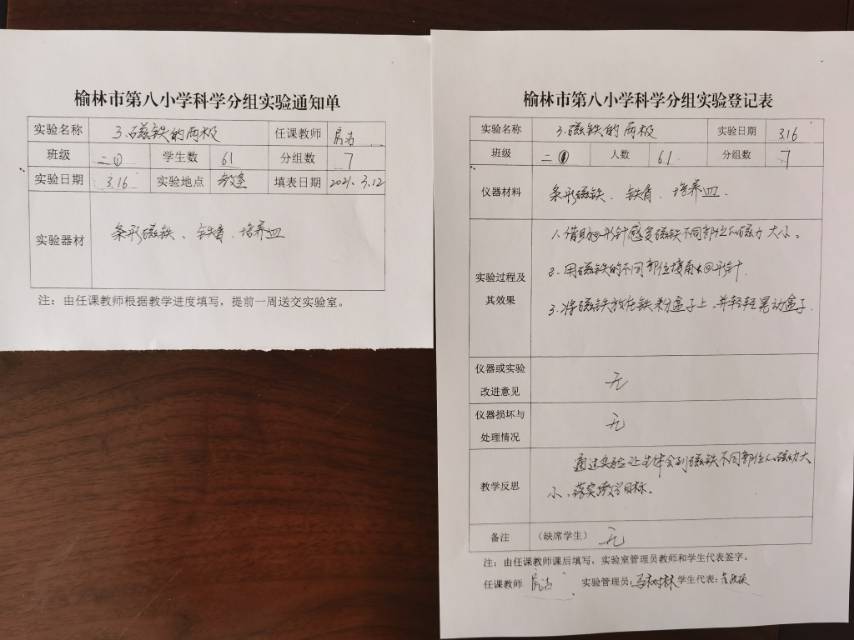 榆林市第八小学科学分组实验通知单
实验名称 3.磁铁的两极 任课教师
班级 二① 学生数 61 分组数 7
实验日期 3.16 实验地点 教室 填表日期 2021.3.12
实验器材 条形磁铁、铁屑、培养皿
注：由任课教师根据教学进度填写，提前一周送交实验室。
榆林市第八小学科学分组实验登记表
实验名称 3.磁铁的两极 实验日期 3.16
班级 二① 人数 61 分组数 7
仪器材料 条形磁铁、铁屑、培养皿.
实验过程及
其效果
1.借助回形针感受磁铁不同部位的磁力大小。
2.用磁铁的不同部位接触回形针.
3.将磁铁放在铁粉盒子上,并轻轻晃动盒子.
仪器或实验
改进意见
无
仪器损坏与
处理情况
无
教学反思
通过实验让学生体会到磁铁不同部位的磁力大
小、落实教学目标。
备注 (缺席学生) 无
注：由任课教师课后填写，实验室管理员教师和学生代表签字。
任课教师 实验管理员: 学生代表: